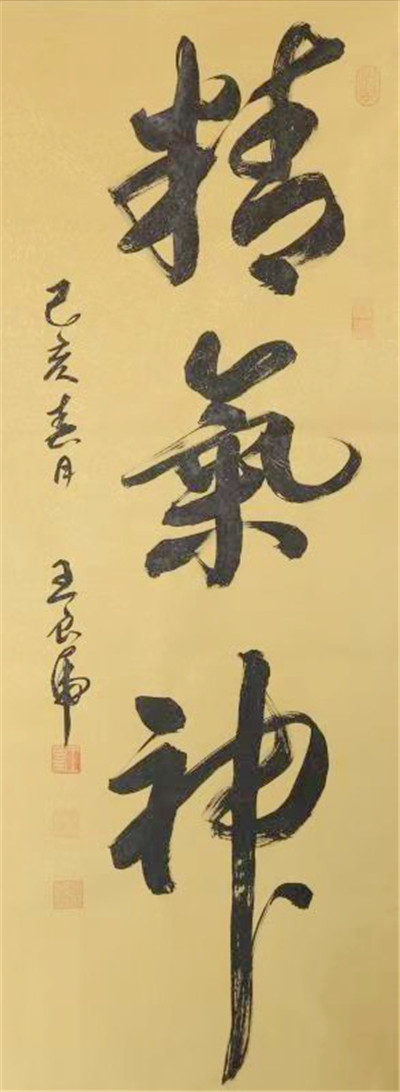 精氣神
己亥春月
王良虎